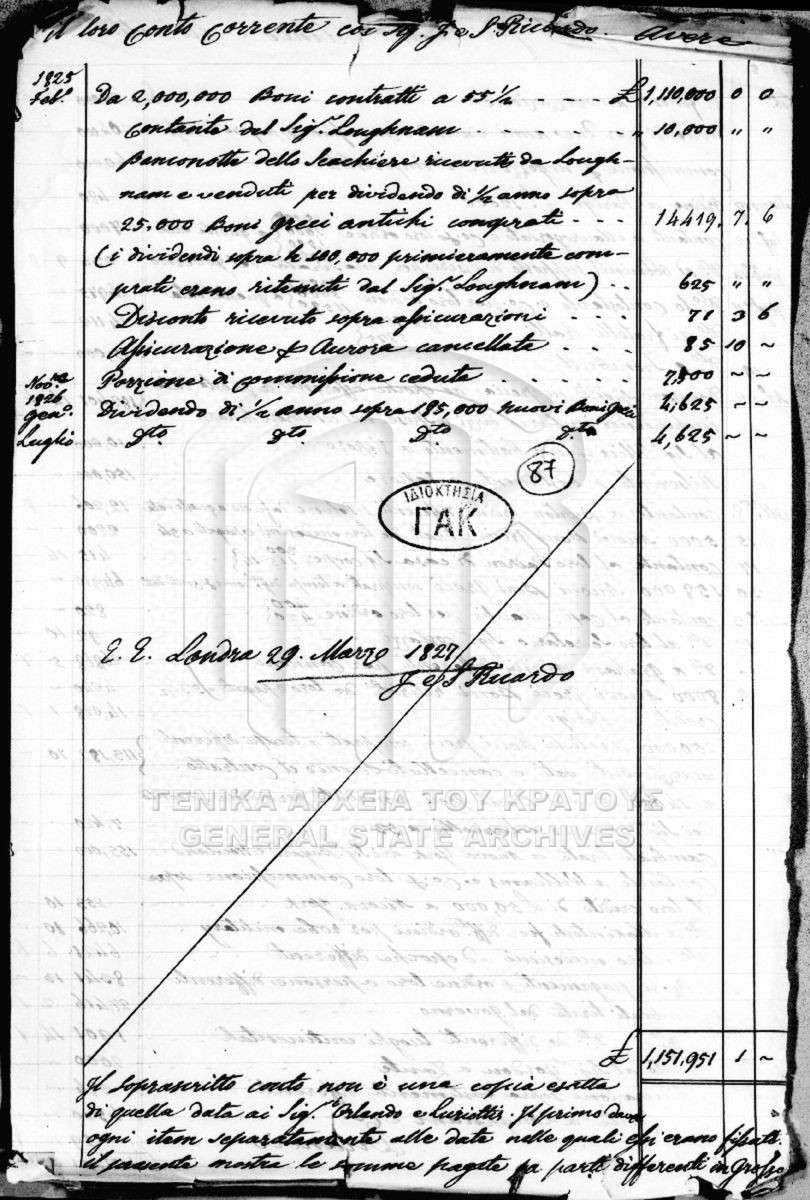 il loro Conto Corrente coi Sigi. J e S. Ricardo. Avere
1825
Febo. Da 2,000,000 Boni contratti a 55 1/2 - - - - £ 1,110,000 0 0
Contante del Sigr. Loughnam - - - - - " 10,000 " "
Banconotte dello Scachiere ricevute da Lough-
nam e venduti per dividendo di 1/2 anno sopra
25.000 Boni greci antichi comprati - - - 14419. 7. 6
(i dividendi sopra £ 100,000 primieramente com-
prati erano ritenuti dal Sigr. Loughnam) . . 625 " "
Disconto ricevuto sopra assicurazioni - - - 71 3 6
Assicurazione p Aurora cancellata - - - - 85 10 ~
Novre Porzione di commissione ceduta . . . . . . . 7,500 ~ ~
1826
Geno. Dividendo di 1/2 anno sopra 185,000 nuovi Boni Greci 4,625 ~ ~
Luglio Dto. dto. Dto dto 4,625 ~ ~
87
ΙΔΙΟΚΤΗΣΙΑ
ΓΑΚ
E. E. Londra 29. Marzo 1827
J e S Ricardo
ΓΕΝΙΚΑ ΑΡΧΕΙΑ ΤΟΥ ΚΡΑΤΟΥΣ
GENERAL STATE ARCHIVES
£ 1,151,951 1 ~
Il soprascritto conto non è una copia esatta
di quella data ai Sigi. Orlando e Luriottis. Il primo dava
ogni item separatamente alle date nelle quali essi erano fissati.
il presente mostra le somme pagate pa parti differenti in Grosso